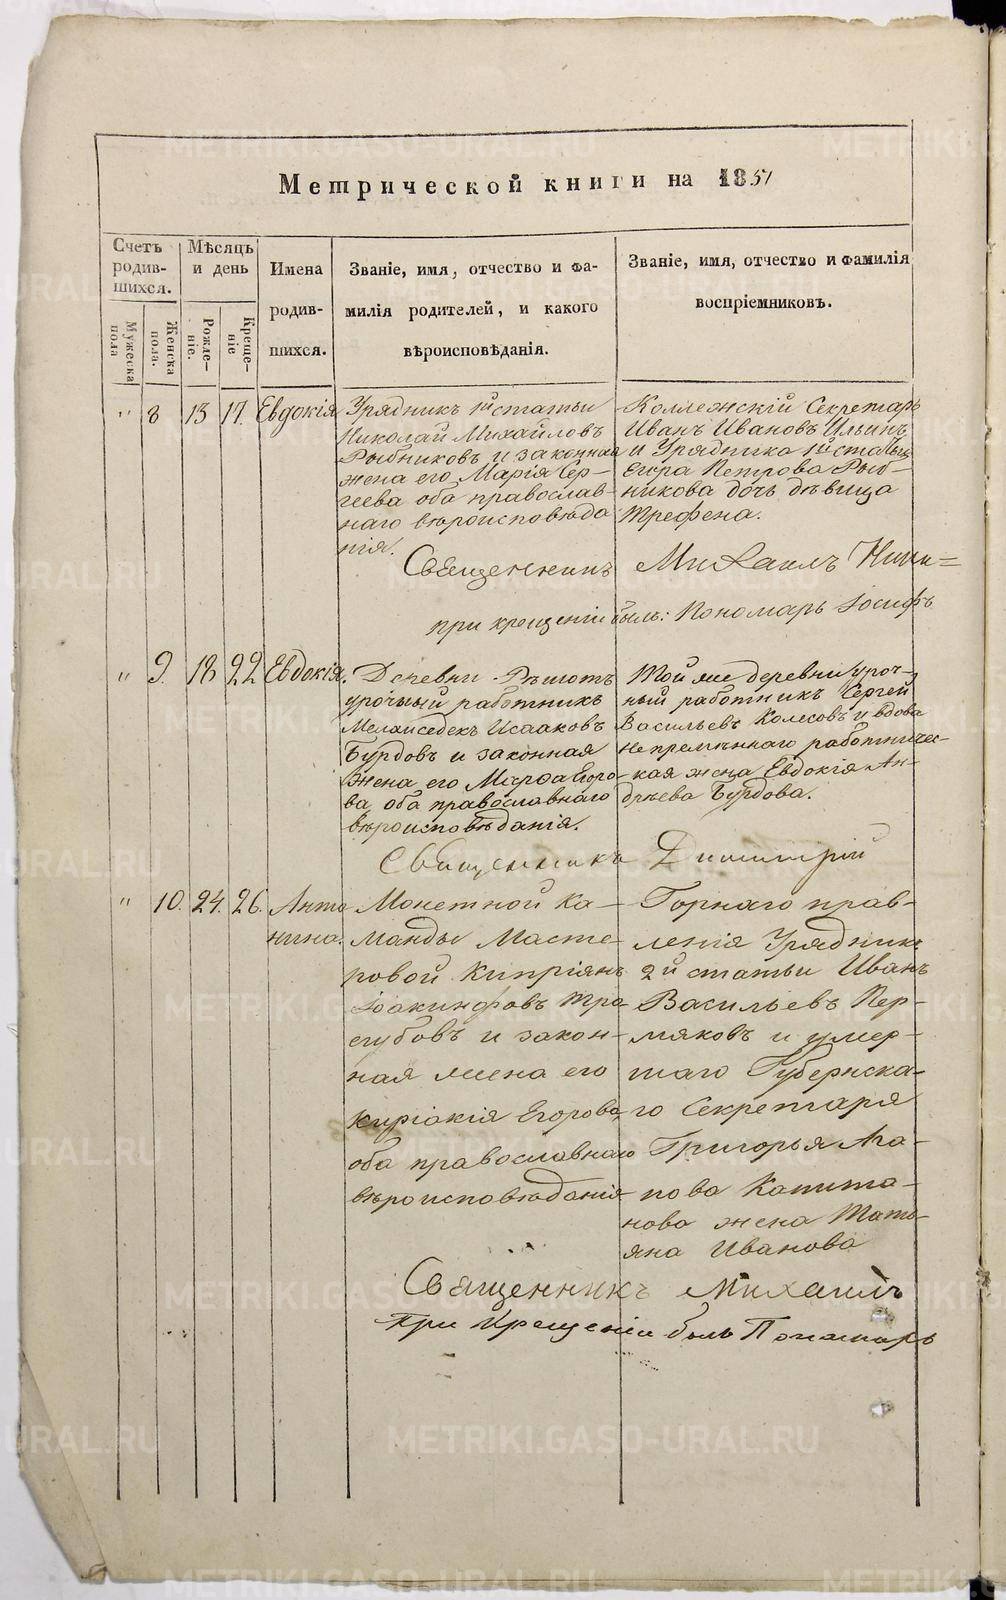 Метрической книги на 1851
Счетъ родив- шихся.
Мѣсяцъ и день
Имена родив- шихся.
Званіе, имя, отчество и фа-
милія родителей, и какого
вѣроисповѣданія.
Званіе, имя, отчество и фамилія
воспріемниковъ.
Мужеска пола
Женска пола.
Рожде- ніе.
Креще- ніе
" 8 15 17. Евдокія
Урядникъ 1й статьи
Николай Михайловъ
Рыбниковъ и законная
жена его Марія Сер-
геева оба православ-
наго вѣроисповѣда
нія.
Коллежскій Секретарь
Иванъ Ивановъ Ильинъ
и Урядника 1й статьи
Егора Петрова Рыб-
никова дочь дѣвица
Трефена.
Священникъ Михаилъ
при крещеніи былъ: Пономарь Іосифъ
" 9. 18 22 Евдокія.
Деревни Рѣшотъ
урочный работникъ
Мелхиседекъ Исааковъ
Бурдовъ и законная
жена его Марфа Егоро-
ва оба православнаго
вѣроисповѣданія.
Той же деревни уроч-
ный работникъ Сергей
Васильевъ Колесовъ и вдова
непремѣннаго работничес-
кая жена Евдокія Ан-
дрѣева Бурдова.
Священникъ Димитрій
" 10. 24. 26. Анто
нина.
Монетной Ка-
манды Масте-
ровой Кипріянъ
Іоакинфовъ Тре
егубовъ и закон-
ная жена его
Киріакія Егорова,
оба православнаго
вѣроисповѣданія
Горнаго прав-
ленія Урядникъ
2й статьи Иванъ
Васильевъ Пер-
мяковъ и умер-
шаго Губернска-
го Секретаря
Григорья Ага-
пова Капита-
нова жена Тать-
яна Иванова
Священникъ Михаилъ
При Крещеніи былъ Пономарь